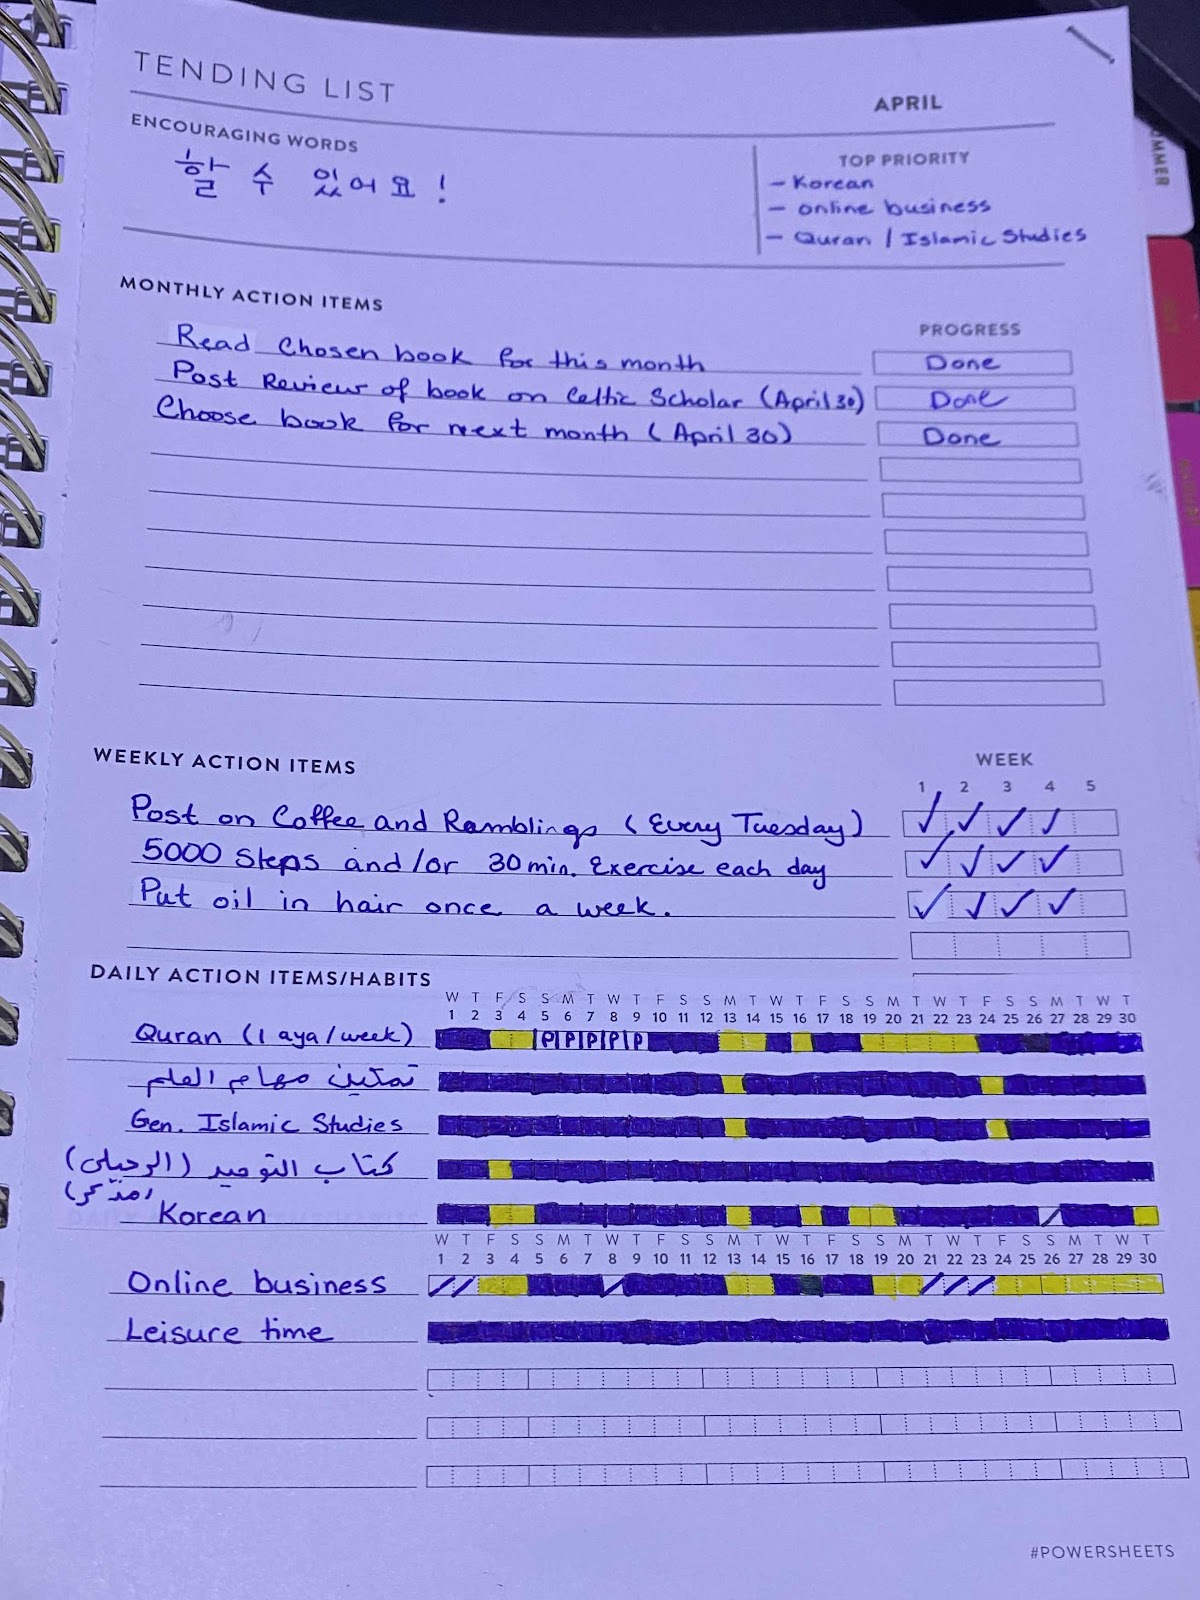 TENDING LIST
APRIL
ENCOURAGING WORDS
할 수 있어요!
TOP PRIORITY
- Korean
- online business
- Quran / Islamic Studies
MONTHLY ACTION ITEMS
PROGRESS
Read Chosen book for this month Done
Post Review of book on Celtic Scholar (April 30) Done
Choose book for next month (April 30) Done
WEEKLY ACTION ITEMS
WEEK
1 2 3 4 5
Post on Coffee and Ramblings (Every Tuesday) ✓ ✓ ✓ ✓
5000 Steps and/or 30 min. Exercise each day ✓ ✓ ✓ ✓
Put oil in hair once a week. ✓ ✓ ✓ ✓
DAILY ACTION ITEMS/HABITS
W T F S S M T W T F S S M T W T F S S M T W T F S S M T W T
1 2 3 4 5 6 7 8 9 10 11 12 13 14 15 16 17 18 19 20 21 22 23 24 25 26 27 28 29 30
Quran (1 aya/week) P P P P P
مهام العلم
Gen. Islamic Studies
كتاب التوحيد (الرحيلي)
Korean
W T F S S M T W T F S S M T W T F S S M T W T F S S M T W T
1 2 3 4 5 6 7 8 9 10 11 12 13 14 15 16 17 18 19 20 21 22 23 24 25 26 27 28 29 30
Online business
Leisure time
#POWERSHEETS